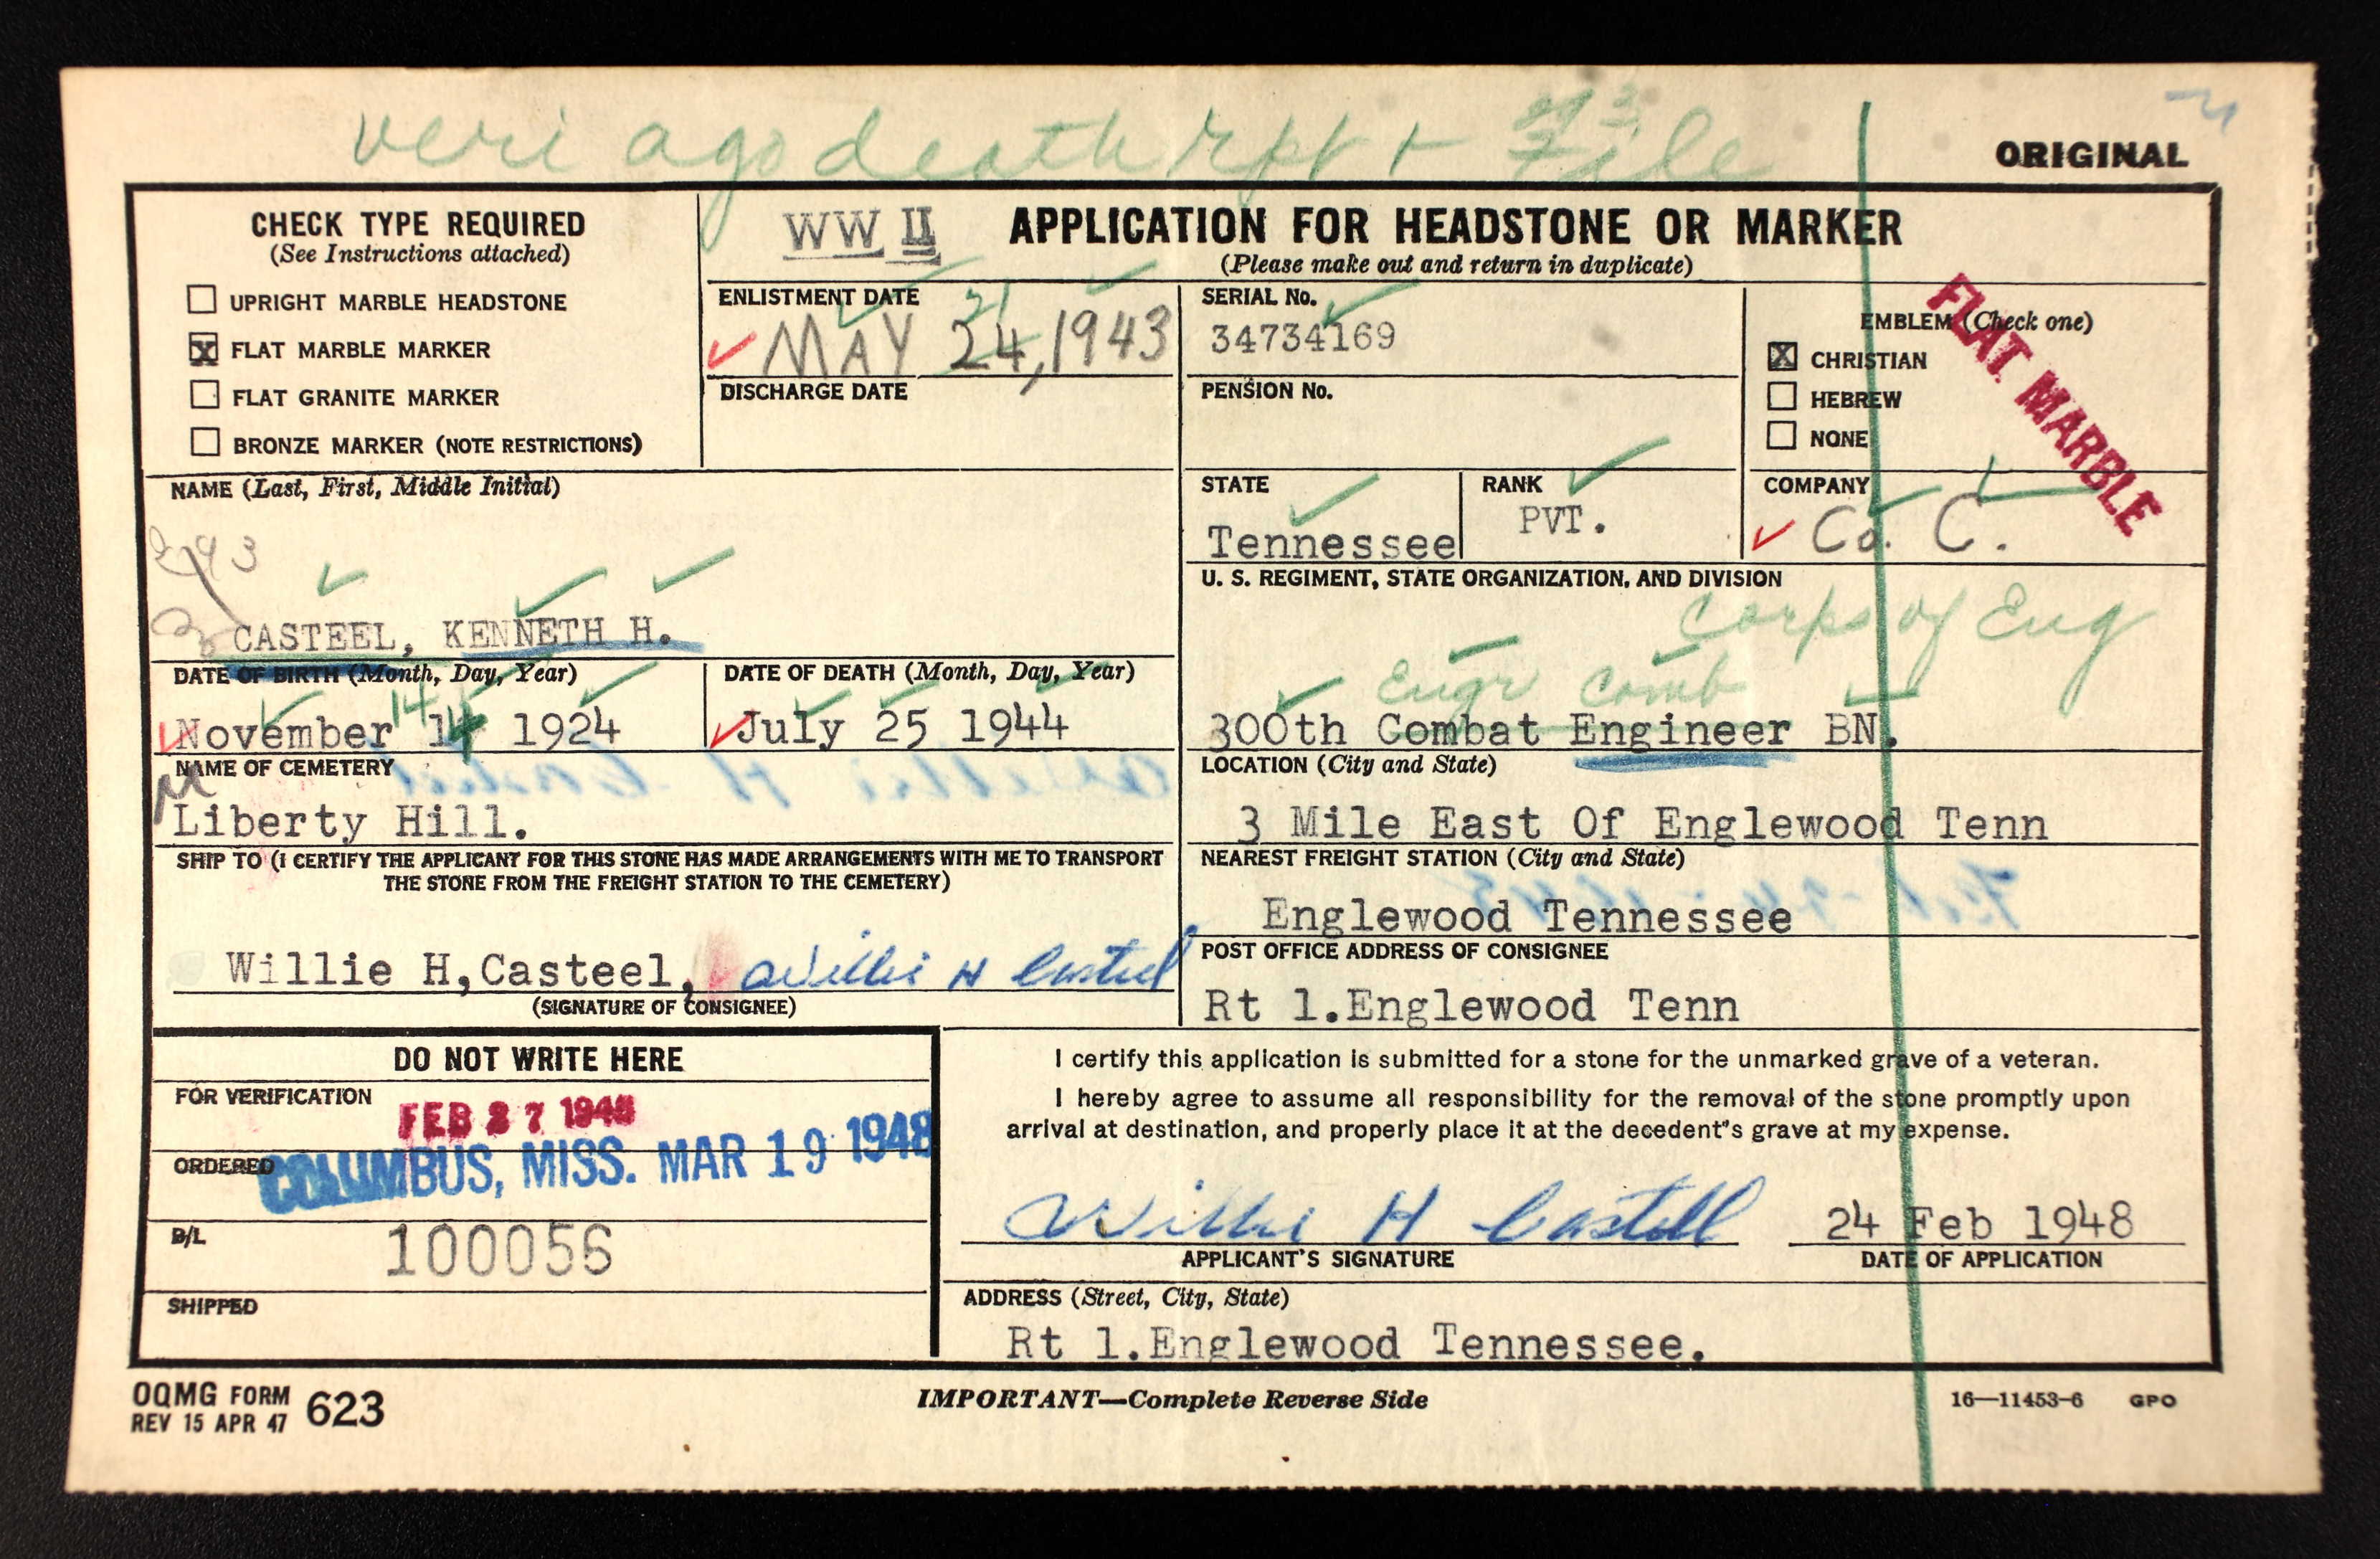 veri ago death rpt + File
ORIGINAL
CHECK TYPE REQUIRED
(See Instructions attached)
UPRIGHT MARBLE HEADSTONE
X FLAT MARBLE MARKER
FLAT GRANITE MARKER
BRONZE MARKER (NOTE RESTRICTIONS)
WW II APPLICATION FOR HEADSTONE OR MARKER
(Please make out and return in duplicate)
ENLISTMENT DATE
21
MAY 24, 1943
DISCHARGE DATE
SERIAL No.
34734169
PENSION No.
EMBLEM (Check one)
X CHRISTIAN
HEBREW
NONE
FLAT MARBLE
NAME (Last, First, Middle Initial)
CASTEEL, KENNETH H.
STATE
Tennessee
RANK
PVT.
COMPANY
Co. C.
U. S. REGIMENT, STATE ORGANIZATION, AND DIVISION
Corps of Eng
Engr Comb
300th Combat Engineer BN.
DATE OF BIRTH (Month, Day, Year)
14
November 14 1924
DATE OF DEATH (Month, Day, Year)
July 25 1944
NAME OF CEMETERY
Liberty Hill.
LOCATION (City and State)
3 Mile East Of Englewood Tenn
SHIP TO (I CERTIFY THE APPLICANT FOR THIS STONE HAS MADE ARRANGEMENTS WITH ME TO TRANSPORT
THE STONE FROM THE FREIGHT STATION TO THE CEMETERY)
Willie H,Casteel, Willie H Casteel
(SIGNATURE OF CONSIGNEE)
NEAREST FREIGHT STATION (City and State)
Englewood Tennessee
POST OFFICE ADDRESS OF CONSIGNEE
Rt 1.Englewood Tenn
DO NOT WRITE HERE
FOR VERIFICATION
FEB 27 1948
ORDERED
COLUMBUS, MISS. MAR 19 1948
B/L
100056
SHIPPED
I certify this application is submitted for a stone for the unmarked grave of a veteran.
I hereby agree to assume all responsibility for the removal of the stone promptly upon
arrival at destination, and properly place it at the decedent's grave at my expense.
Willie H Casteel
APPLICANT'S SIGNATURE
24 Feb 1948
DATE OF APPLICATION
ADDRESS (Street, City, State)
Rt 1.Englewood Tennessee.
OQMG FORM 623
REV 15 APR 47
IMPORTANT—Complete Reverse Side
16—11453-6 GPO